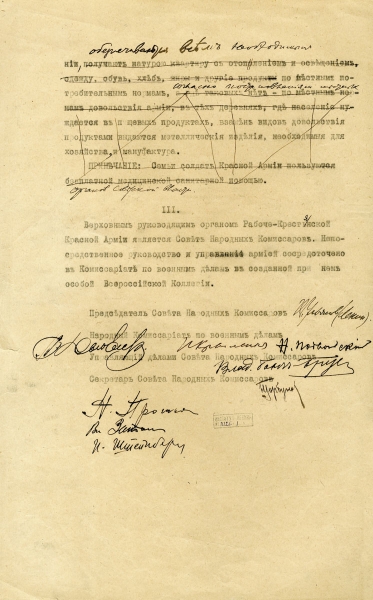 обеспечиваются всѣмъ необходимымъ
ніи, получаютъ натурою квартиру съ отопленіемъ и освѣщеніемъ,
одежду, обувь, хлѣбъ, и другіе продукты по мѣстнымъ по-
требительнымъ нормамъ,
мамъ довольствія арміи, въ тѣхъ деревняхъ, гдѣ населеніе ну-
ждается въ цѣнныхъ продуктахъ, взамѣнъ видовъ довольствія
продуктами выдаются металлическія издѣлія, необходимыя для
хозяйства, и мануфактура.
ПРИМѢЧАНІЕ: Семьи солдатъ Красной Арміи пользуются
бесплатной медицинской санитарной помощью.
органов Советской власти
III.
Верховнымъ руководящимъ органомъ Рабоче-Крестьянской
Красной Арміи является Совѣтъ Народныхъ Комиссаровъ. Непо-
средственное руководство и управленіе арміей сосредоточено
въ Комиссаріатѣ по военнымъ дѣламъ въ созданной при немъ
особой Всероссійской Коллегіи.
Предсѣдатель Совѣта Народныхъ Комиссаровъ В. Ульянов (Ленин)
Народный Комиссаріатъ по военнымъ дѣламъ
Н. Крыленко Н. Подвойский
Управляющій дѣлами Совѣта Народныхъ Комиссаровъ
Влад. Бонч-Бруевич
Секретарь Совѣта Народныхъ Комиссаровъ
Горбунов
И. Штейнберг